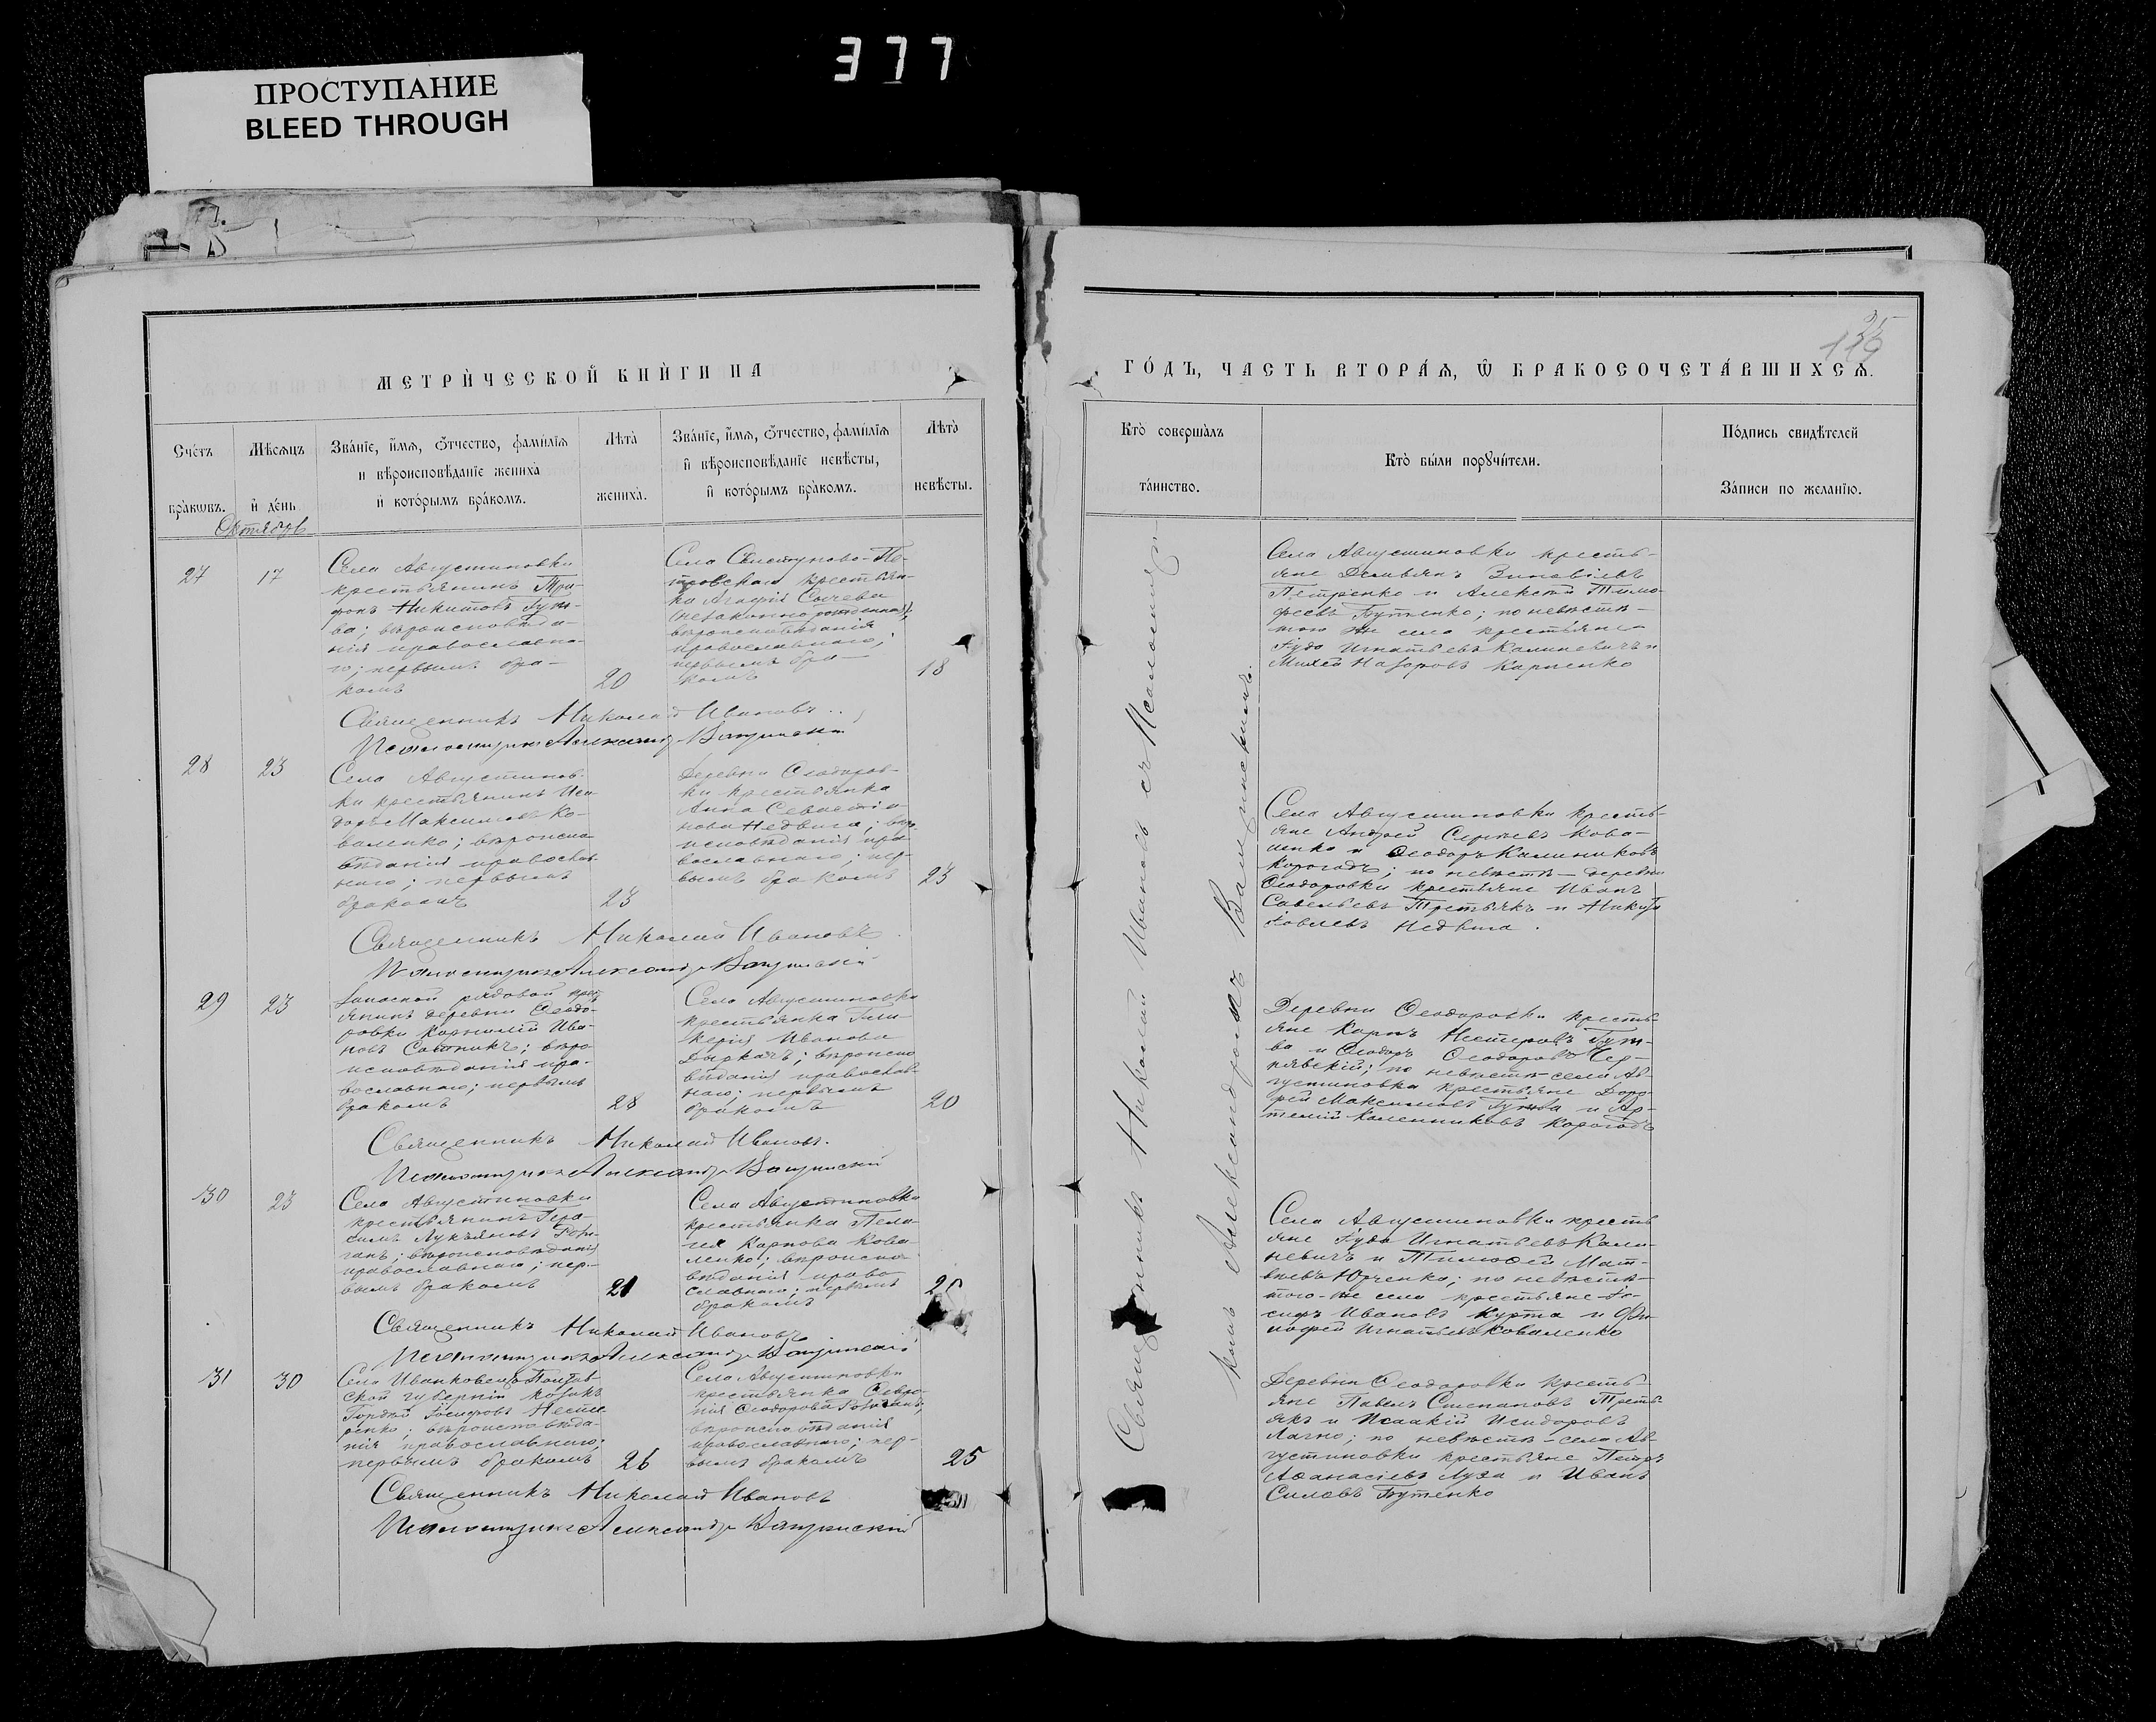 377
ПРОСТУПАНИЕ
BLEED THROUGH
МЕТРИ́ЧЕСКОЙ КНИ́ГИ НА
Сче́тъ бра́кѡвъ.
Мѣ́сяцъ и҆ де́нь
Зва́нїе, и҆́мя, ѻ҆́тчество, фамѝлїя
и вѣроисповѣ́данїе жениха̀
и҆ кото́рымъ бра́комъ.
Лѣта̀ жениха̀.
Зва́нїе, и҆́мя, ѻ҆́тчество, фамѝлїя
и҆ вѣроисповѣ́данїе невѣ́сты,
и҆ кото́рымъ бра́комъ.
Лѣта̀ невѣ́сты.
Октябрь
27
17
Села Августиновки
крестьянинъ Три-
фонъ Никитовъ Гуж-
ва; вѣроисповѣда-
нія православна-
го; первымъ бра-
комъ
20
Села Свистуново-Пе-
тровскаго крестьян-
ка Агафія Сычева
(незаконнорожденная),
вѣроисповѣданія
православнаго;
первымъ бра-
комъ
18
Священникъ Николай Ивановъ
Псаломщикъ Александръ
28
23
Села Августинов-
ки крестьянинъ Иси-
доръ Максимовъ Ко-
валенко; вѣроиспо-
вѣданія православ-
наго; первымъ
бракомъ
23
Деревни Ѳеодоров-
ки крестьянка
Анна Севастіа-
нова Недвига; вѣро-
исповѣданія пра-
вославнаго; пер-
вымъ бракомъ
23
Священникъ Николай Ивановъ
Псаломщикъ Александръ
29
23
Запасной рядовой крест
янинъ деревни Ѳеодо-
ровки Корнилій Ива-
новъ Сотникъ; вѣро
исповѣданія пра-
вославнаго; первымъ
бракомъ
28
Села Августиновки
крестьянка Гли-
керія Иванова
Дыркачъ; вѣроиспо
вѣданія православ-
наго; первымъ
бракомъ
20
Священникъ Николай Ивановъ.
Псаломщикъ Александръ
30
23
Села Августиновки
крестьянинъ Гера-
симъ Лукьяновъ
вѣроисповѣданія
православнаго; пер-
вымъ бракомъ
21
Села Августиновки
крестьянка Пела-
гія Карпова Кова-
ленко; вѣроиспо-
вѣданія право
славнаго; первымъ
бракомъ
Священникъ Николай Ивановъ
Псаломщикъ Александръ
31
30
Села Полтав-
ской губерніи козакъ
Гордѣй Іосифовъ Несте
ренко; вѣроисповѣда-
нія православнаго;
первымъ бракомъ
26
Села Августиновки
крестьянка Февро-
нія Ѳеодорова
вѣроисповѣданія
православнаго; пер-
вымъ бракомъ
25
Священникъ Николай Ивановъ
Псаломщикъ Александръ
ГО́ДЪ, ЧАСТЬ ВТОРА́Я, Ѽ БРАКОСОЧЕТА́ВШИХСЯ.
Кто̀ соверша̀лъ та́инство.
Кто̀ бы́ли порꙋчи́тели.
По́дпись свидѣ́телей
За́писи по жела́нїю.
Священникъ Николай Ивановъ съ Псаломщи-
комъ Александромъ
Села Августиновки кресть-
яне Демьянъ Зиновіевъ
Петренко и Алексѣй Тимо-
феевъ Бутенко; по невѣстѣ-
того же села крестьяне
Іуда Игнатьевъ Калиневичъ и
Михей Назаровъ Карпенко
Села Августиновки кресть-
яне Андрей Сергѣевъ Кова-
ленко и Ѳеодоръ Калиниковъ
Корогодъ; по невѣстѣ-деревни
Ѳеодоровки крестьяне Иванъ
Савельевъ Третьякъ и Никита
Іовлевъ Недвига.
Деревни Ѳеодоровки кресть-
яне Карпъ Нестеровъ Гуж-
ва и Ѳеодоръ Ѳеодоровъ Чер-
нявскій; по невѣстѣ-села Ав-
густиновки крестьяне Доро-
фей Максимовъ Гужва и Ар-
темій Каленниковъ Корогодъ
Села Августиновки кресть
яне Іуда Игнатьевъ Кали-
невичъ и Тимоѳей Мат-
вѣевъ Юрченко; по невѣстѣ-
того-же села крестьяне Іо-
сифъ Ивановъ Курта и Фи-
лофей Игнатьевъ Коваленко
Деревни Ѳеодоровки кресть-
яне Павелъ Степановъ Треть-
якъ и Исаакій Исидоровъ
Лагно; по невѣстѣ-села Ав-
густиновки крестьяне Петръ
Аѳанасіевъ Луза и Иванъ
Силовъ Бутенко